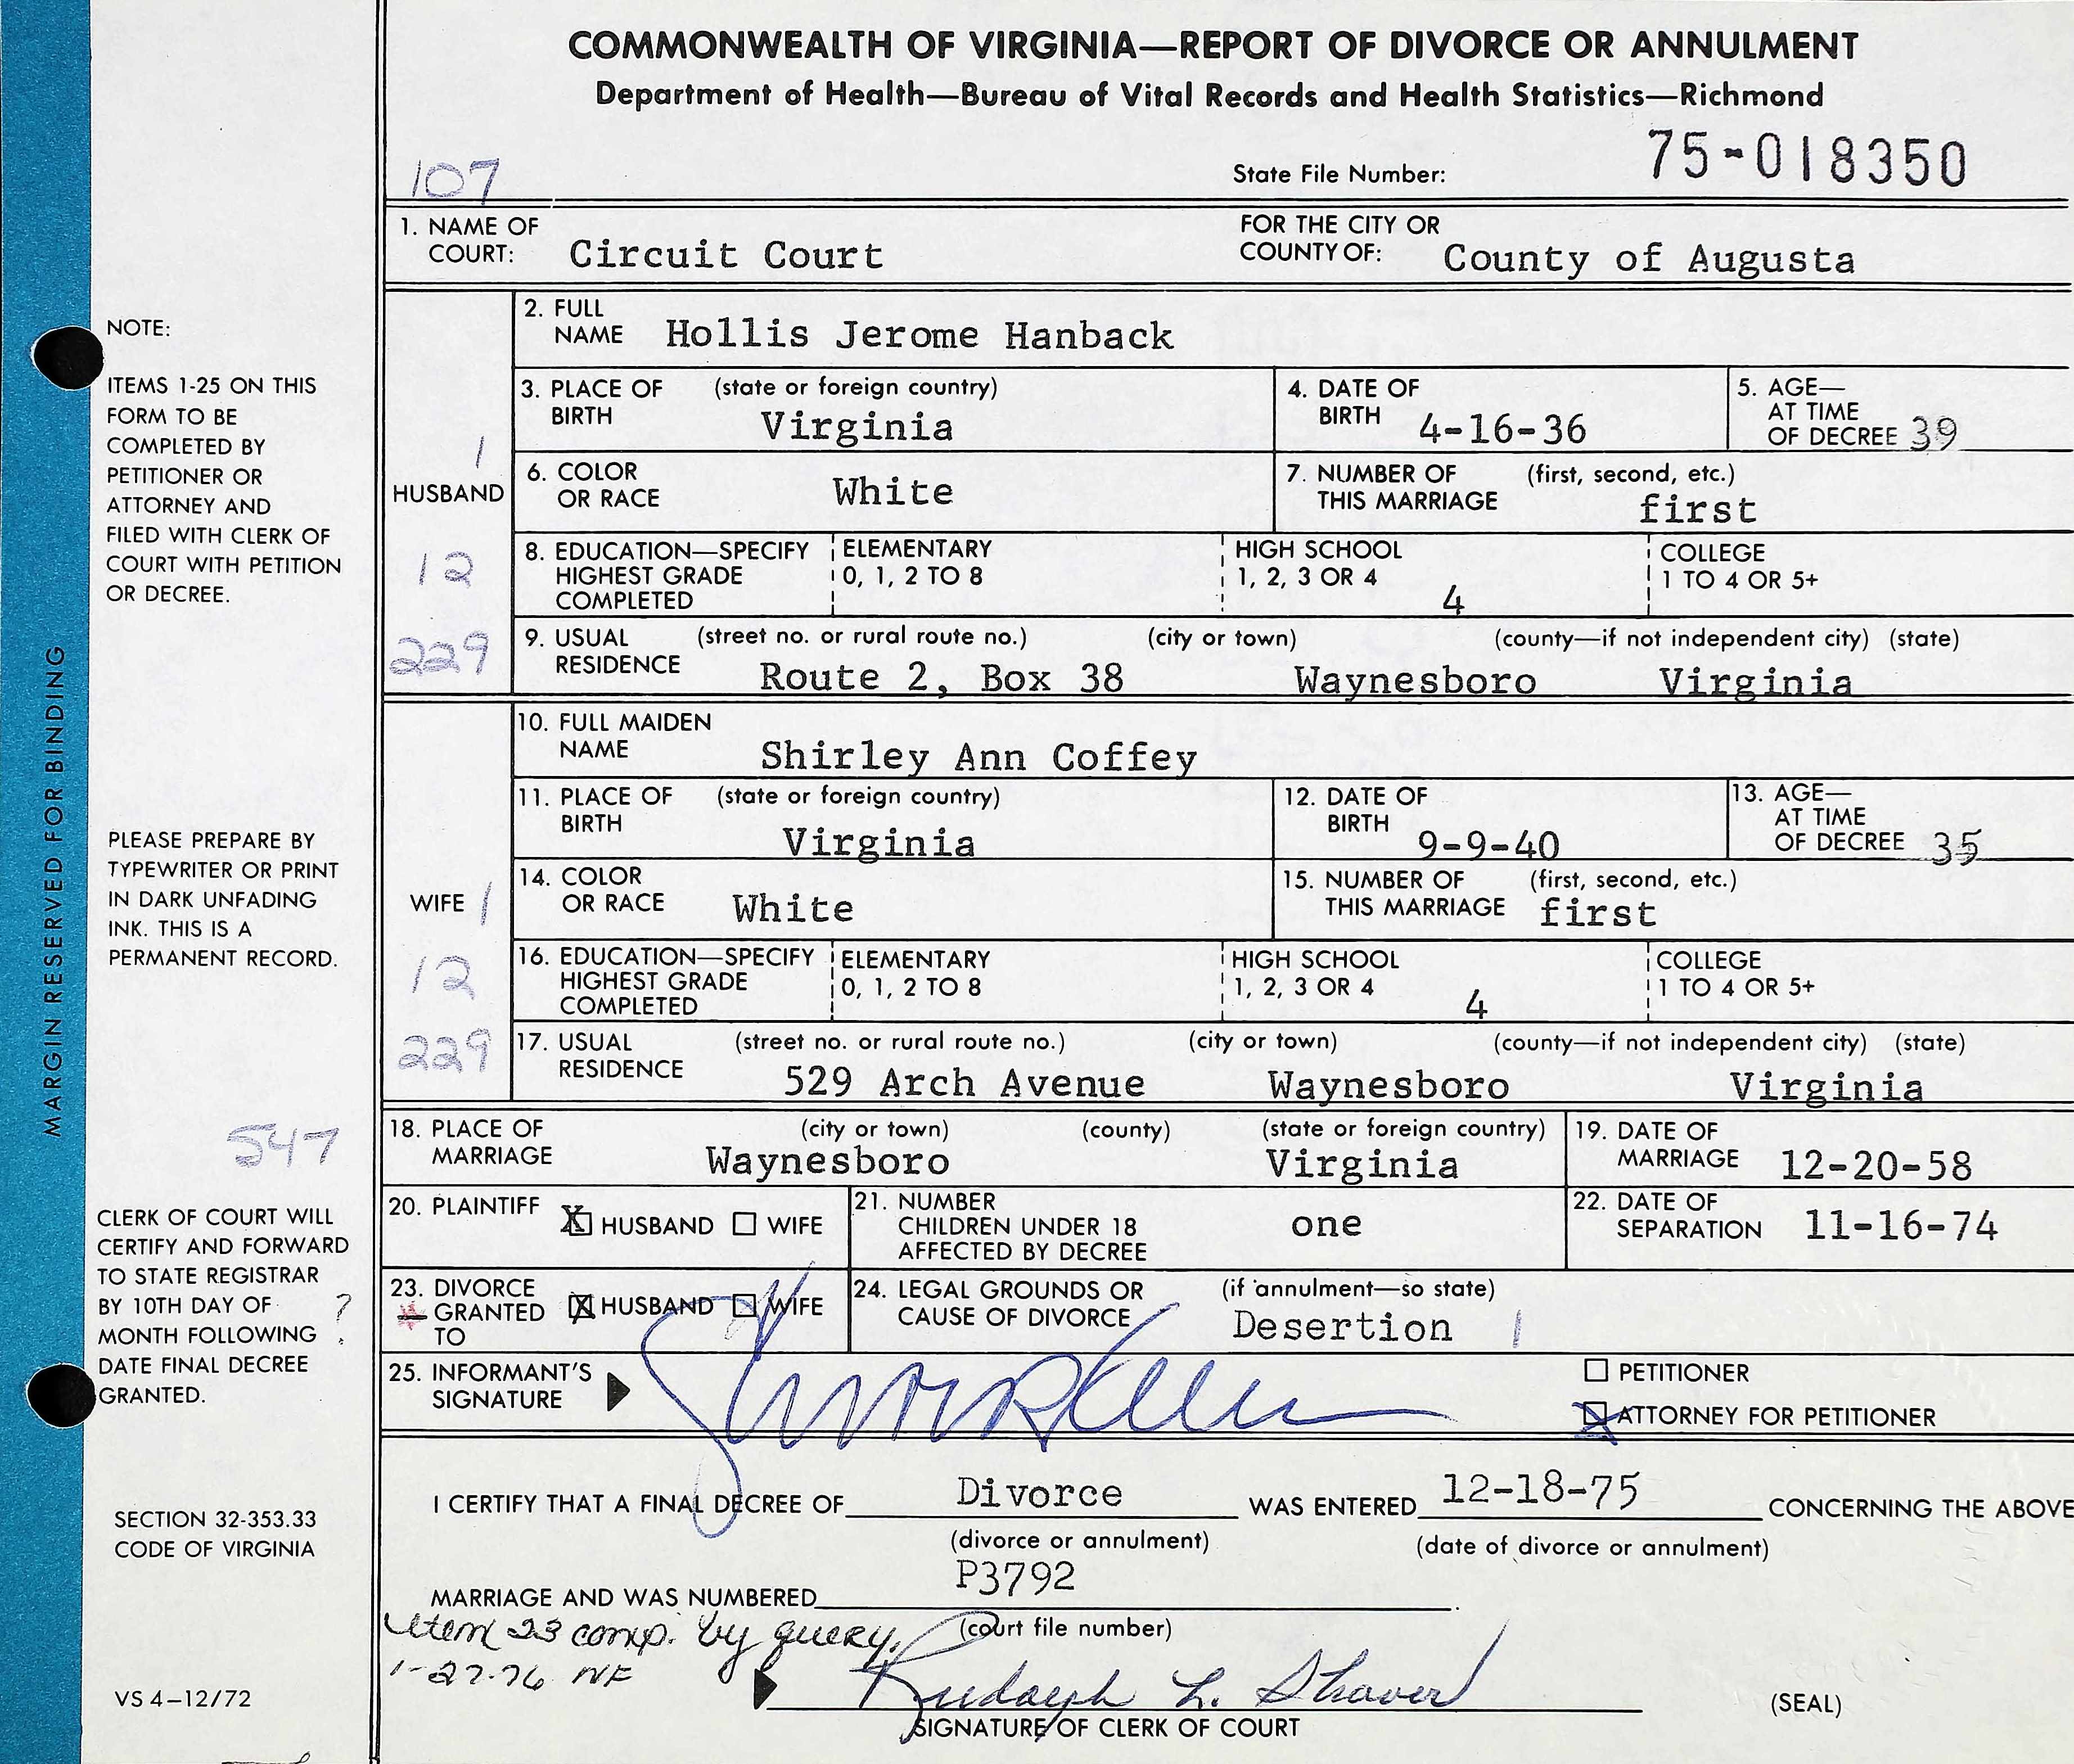 COMMONWEALTH OF VIRGINIA—REPORT OF DIVORCE OR ANNULMENT
Department of Health—Bureau of Vital Records and Health Statistics—Richmond
107
State File Number: 75-018350
1. NAME OF COURT: Circuit Court FOR THE CITY OR COUNTY OF: County of Augusta
HUSBAND
1
12
229
2. FULL NAME Hollis Jerome Hanback
3. PLACE OF BIRTH (state or foreign country) Virginia 4. DATE OF BIRTH 4-16-36 5. AGE— AT TIME OF DECREE 39
6. COLOR OR RACE White 7. NUMBER OF THIS MARRIAGE (first, second, etc.) first
8. EDUCATION—SPECIFY HIGHEST GRADE COMPLETED ELEMENTARY 0, 1, 2 TO 8 HIGH SCHOOL 1, 2, 3 OR 4 4 COLLEGE 1 TO 4 OR 5+
9. USUAL RESIDENCE (street no. or rural route no.) (city or town) (county—if not independent city) (state)
Route 2, Box 38 Waynesboro Virginia
WIFE
1
12
229
10. FULL MAIDEN NAME Shirley Ann Coffey
11. PLACE OF BIRTH (state or foreign country) Virginia 12. DATE OF BIRTH 9-9-40 13. AGE— AT TIME OF DECREE 35
14. COLOR OR RACE White 15. NUMBER OF THIS MARRIAGE (first, second, etc.) first
16. EDUCATION—SPECIFY HIGHEST GRADE COMPLETED ELEMENTARY 0, 1, 2 TO 8 HIGH SCHOOL 1, 2, 3 OR 4 4 COLLEGE 1 TO 4 OR 5+
17. USUAL RESIDENCE (street no. or rural route no.) (city or town) (county—if not independent city) (state)
529 Arch Avenue Waynesboro Virginia
18. PLACE OF MARRIAGE (city or town) (county) (state or foreign country) Waynesboro Virginia 19. DATE OF MARRIAGE 12-20-58
20. PLAINTIFF X HUSBAND WIFE 21. NUMBER CHILDREN UNDER 18 AFFECTED BY DECREE one 22. DATE OF SEPARATION 11-16-74
23. DIVORCE GRANTED TO X HUSBAND WIFE 24. LEGAL GROUNDS OR CAUSE OF DIVORCE (if annulment—so state) Desertion 1
25. INFORMANT'S SIGNATURE
PETITIONER
X ATTORNEY FOR PETITIONER
I CERTIFY THAT A FINAL DECREE OF Divorce WAS ENTERED 12-18-75 CONCERNING THE ABOVE
(divorce or annulment) (date of divorce or annulment)
MARRIAGE AND WAS NUMBERED P3792
(court file number)
Item 23 comp. by query.
1-27-76 NF
Rudolph L. Shaver
SIGNATURE OF CLERK OF COURT
(SEAL)
MARGIN RESERVED FOR BINDING
NOTE:
ITEMS 1-25 ON THIS
FORM TO BE
COMPLETED BY
PETITIONER OR
ATTORNEY AND
FILED WITH CLERK OF
COURT WITH PETITION
OR DECREE.
PLEASE PREPARE BY
TYPEWRITER OR PRINT
IN DARK UNFADING
INK. THIS IS A
PERMANENT RECORD.
547
CLERK OF COURT WILL
CERTIFY AND FORWARD
TO STATE REGISTRAR
BY 10TH DAY OF ?
MONTH FOLLOWING
DATE FINAL DECREE
GRANTED.
SECTION 32-353.33
CODE OF VIRGINIA
VS 4–12/72